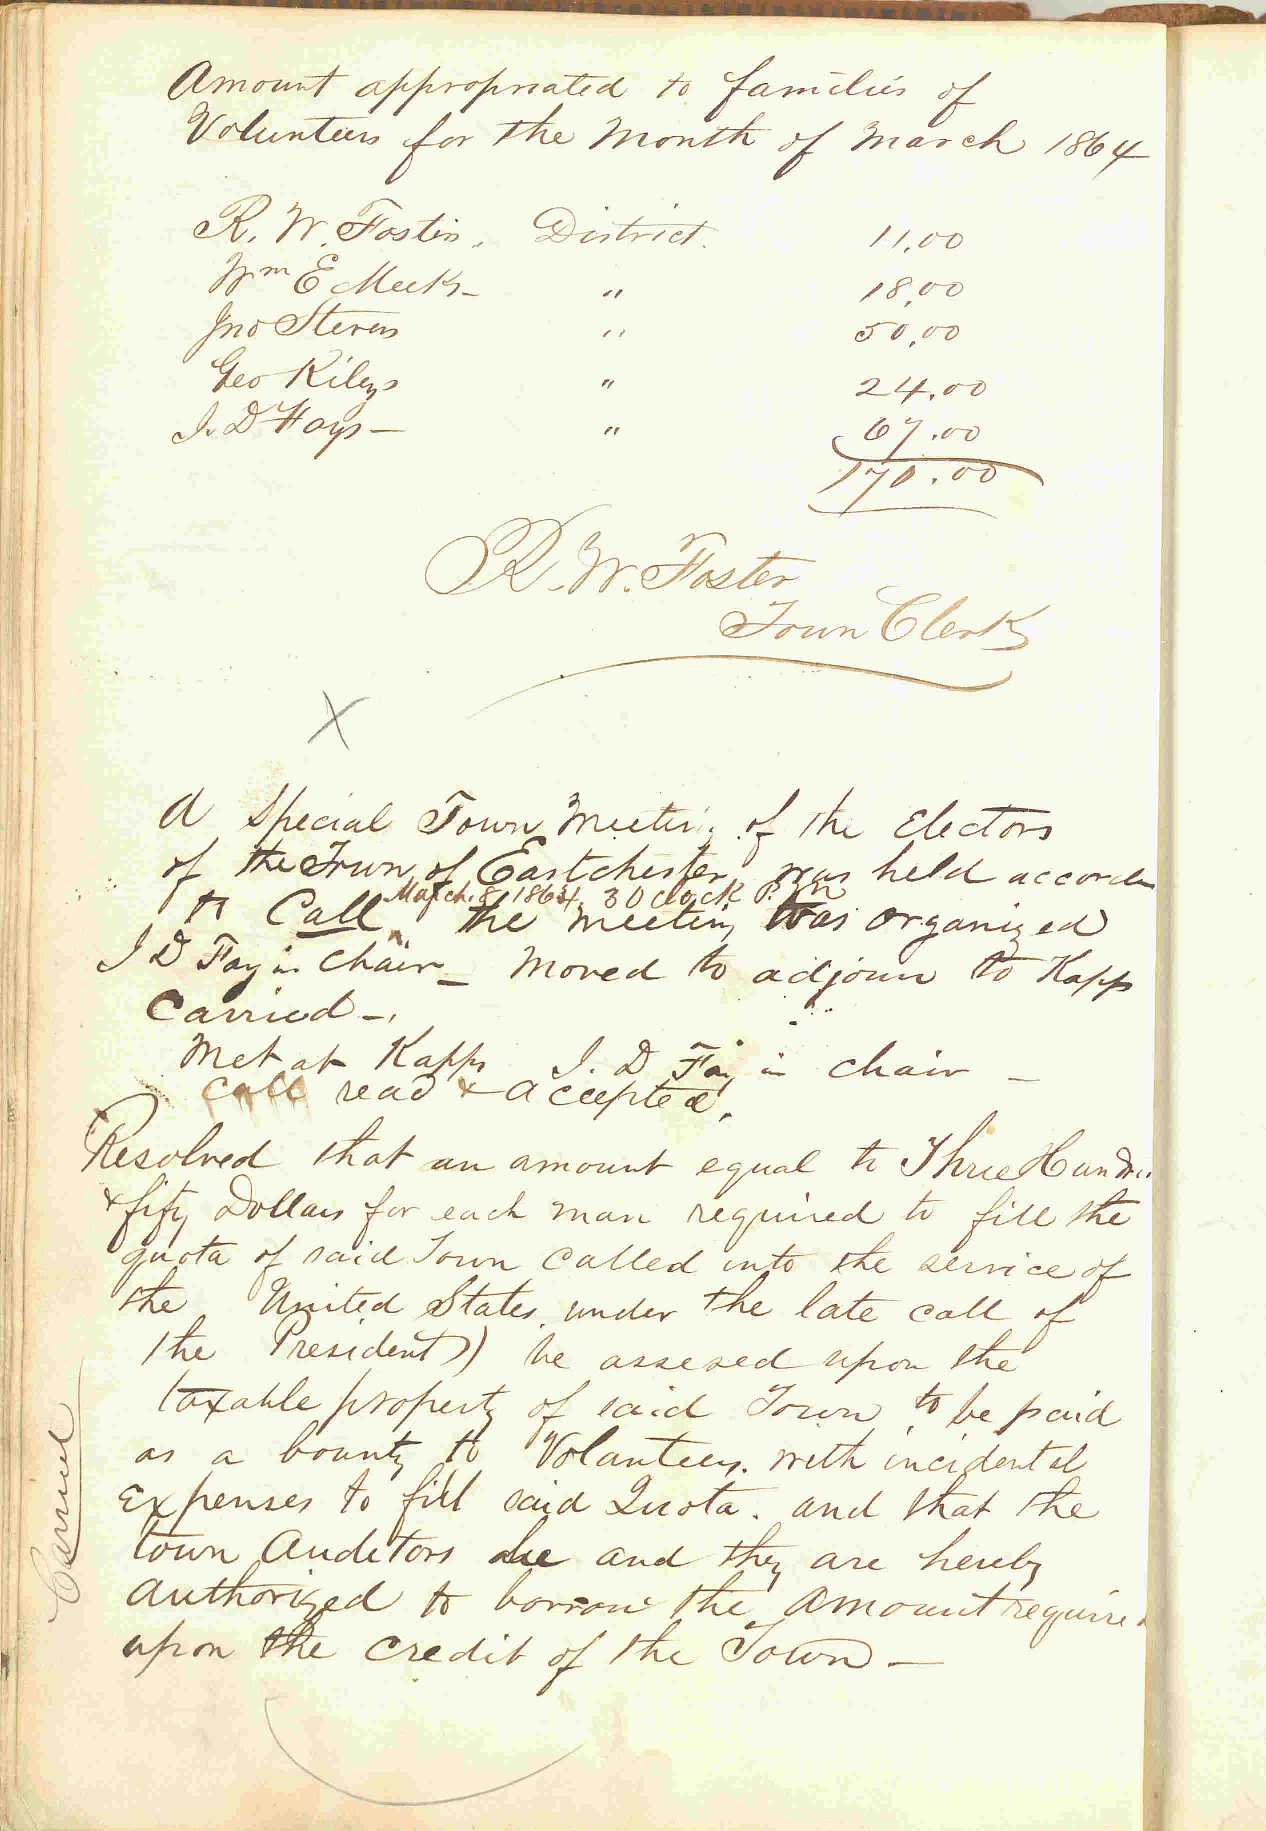 Amount appropriated to families of
Volunteers for the Month of March 1864
R. W. Foster, District. 11.00
Wm E Meeks - " 18.00
Jno Stevens " 50.00
Geo Kileys " 24.00
I. D Fays - " 67.00
170.00
R. W. Foster
Town Clerk
X
A Special Town Meeting of the Electors
of the Town of Eastchester was held accordin
March. 8. 1864, 3 O clock P. M
to Call ^ the meeting was organized
I D Fay in chair - moved to adjourn to Kapps
Carried -.
Met at Kapps I. D Fay in chair -
Call read & accepted.
Resolved that an amount equal to Three Hundre
& fifty Dollars for each man required to fill the
quota of said Town called into the service of
the United States, under the late call of
the President)) be assesed upon the
taxable property of said Town to be paid
as a bounty to Volanteers. with incidental
Expenses to fill said Quota. and that the
town Auditors be and they are hereby
authorized to borrow the amount require
upon the credit of the Town -
Carried